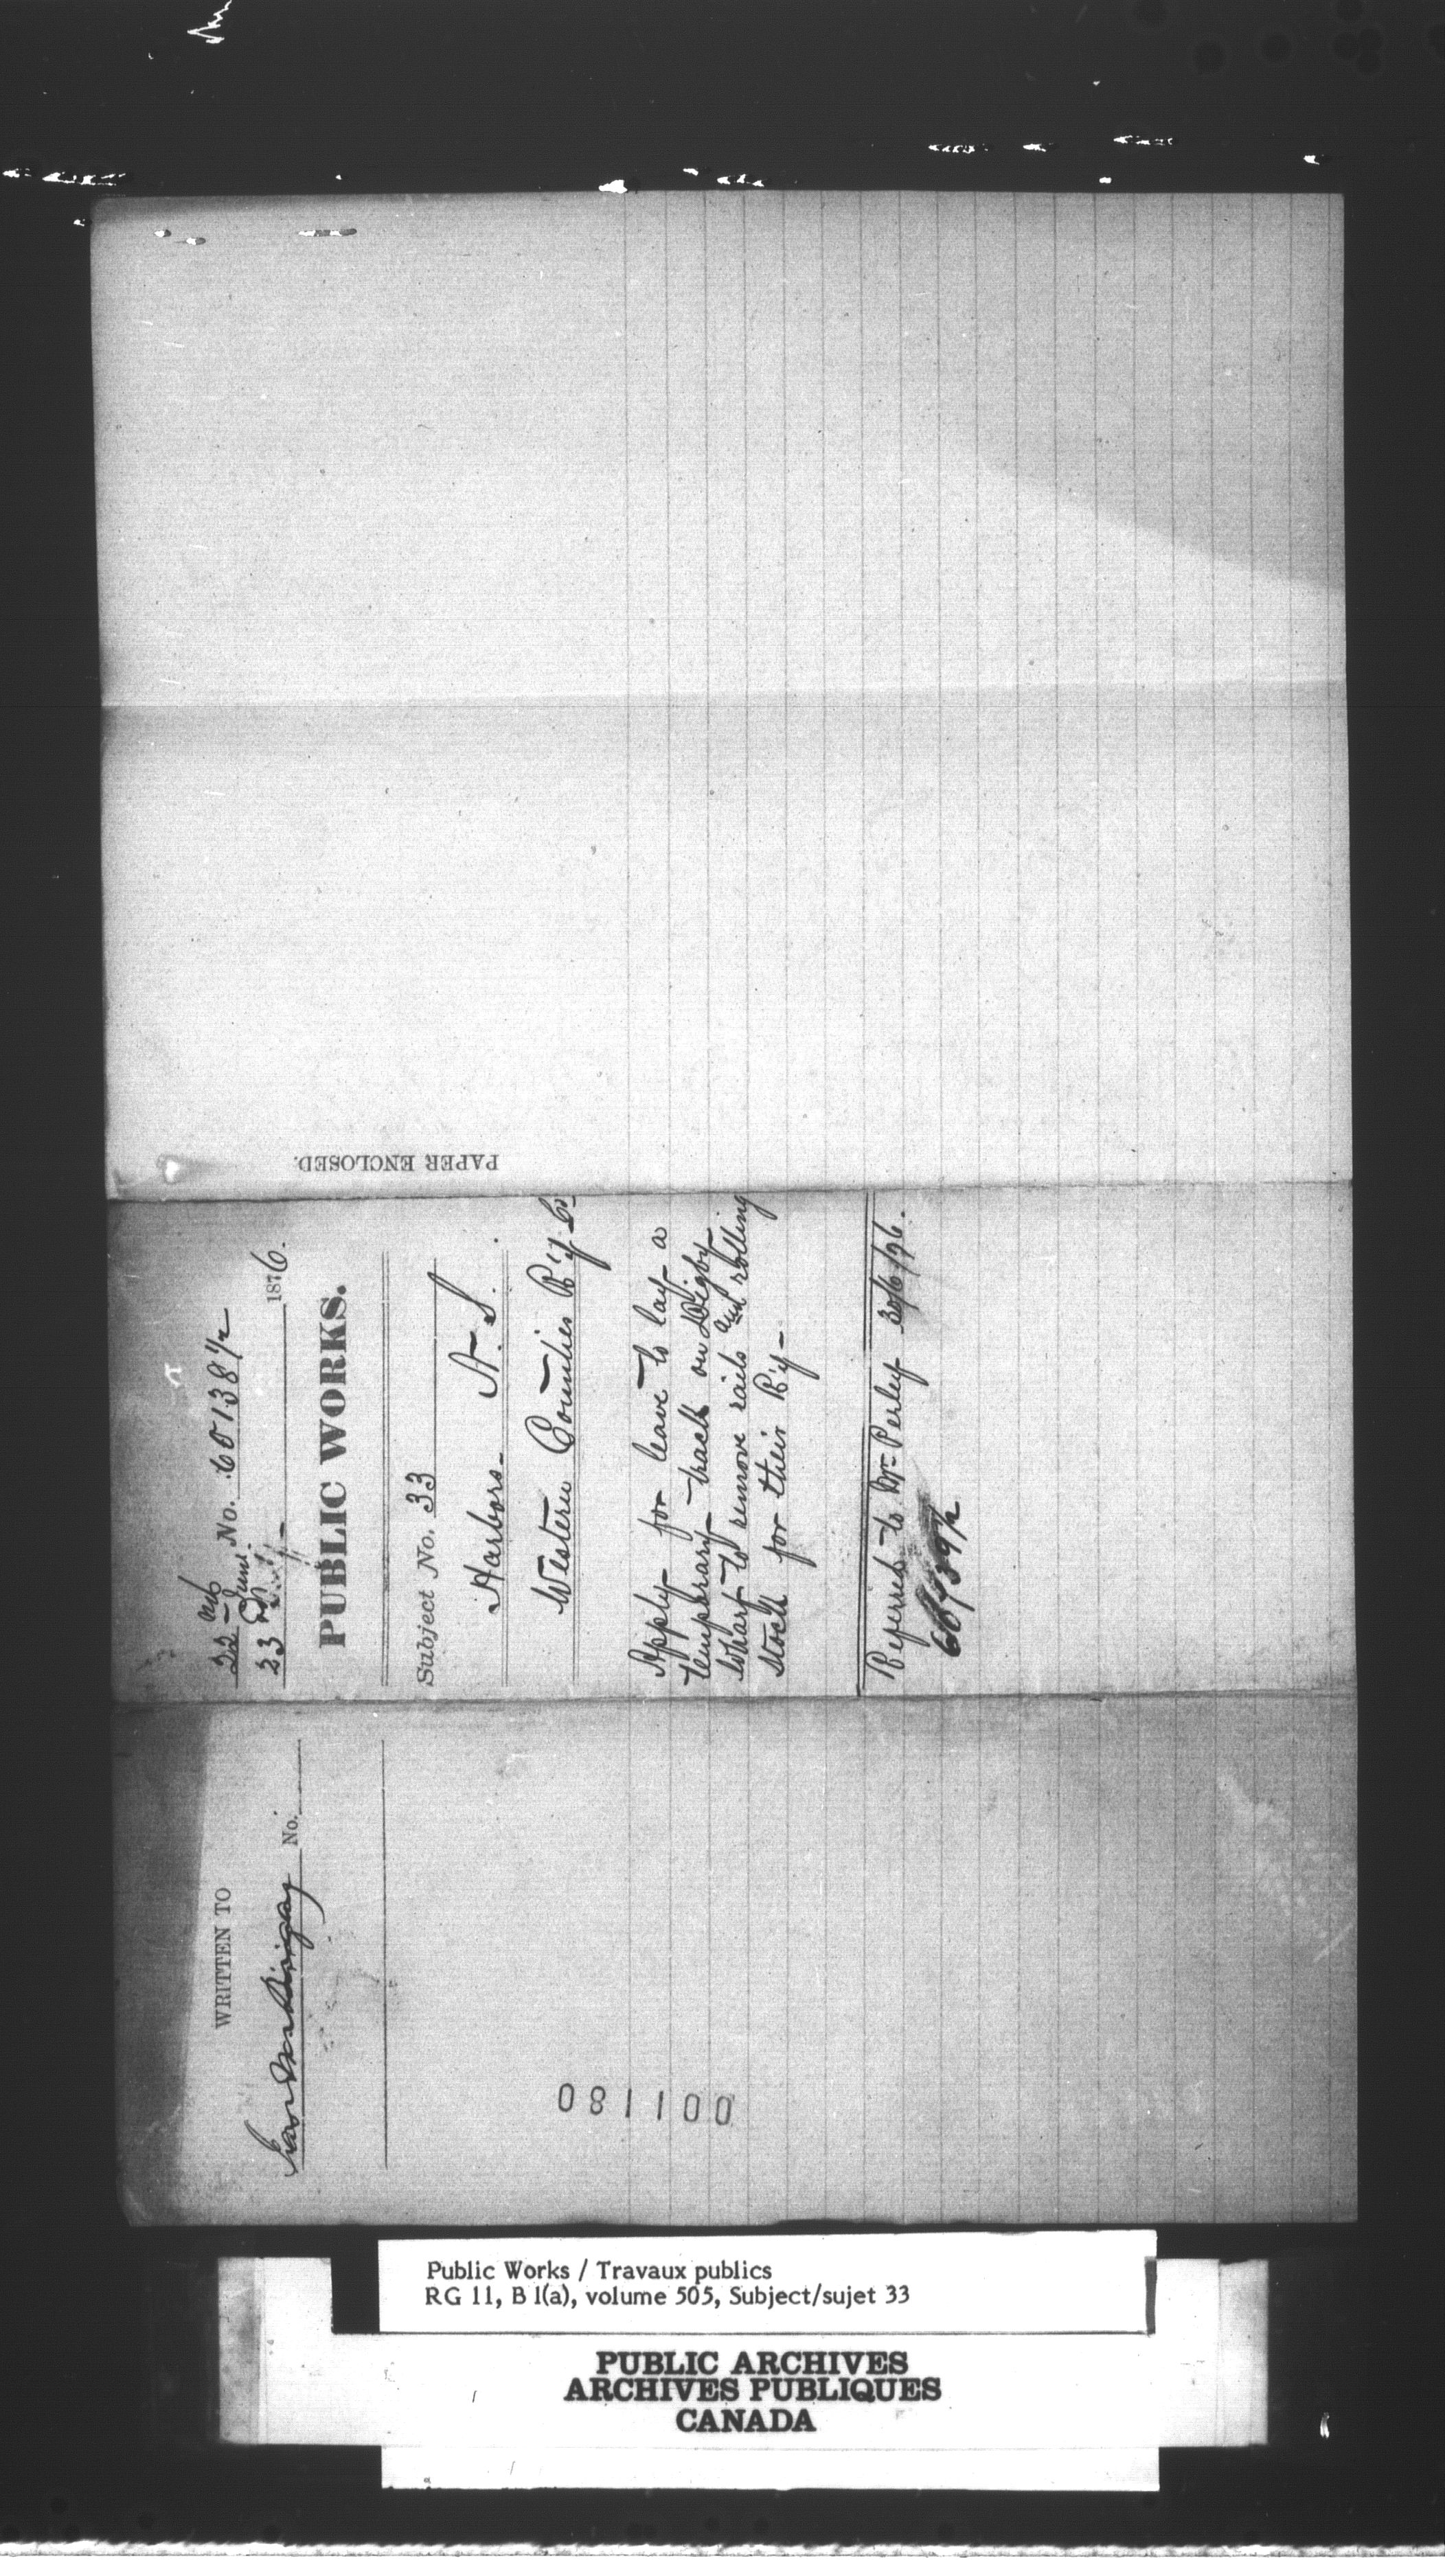 PAPER ENCLOSED.
22nd No. 60138½
23 June 1876.
PUBLIC WORKS.
Subject No. 33
Harbors N.S.
Western Counties R'y Co
Apply for leave to lay a
temporary track on Digby
Wharf to remove rails and rolling
stock for their R'y
Referred to Mr Perley 30/6/76.
WRITTEN TO
No.
001180
Public Works / Travaux publics
RG 11, B 1(a), volume 505, Subject/sujet 33
PUBLIC ARCHIVES
ARCHIVES PUBLIQUES
CANADA